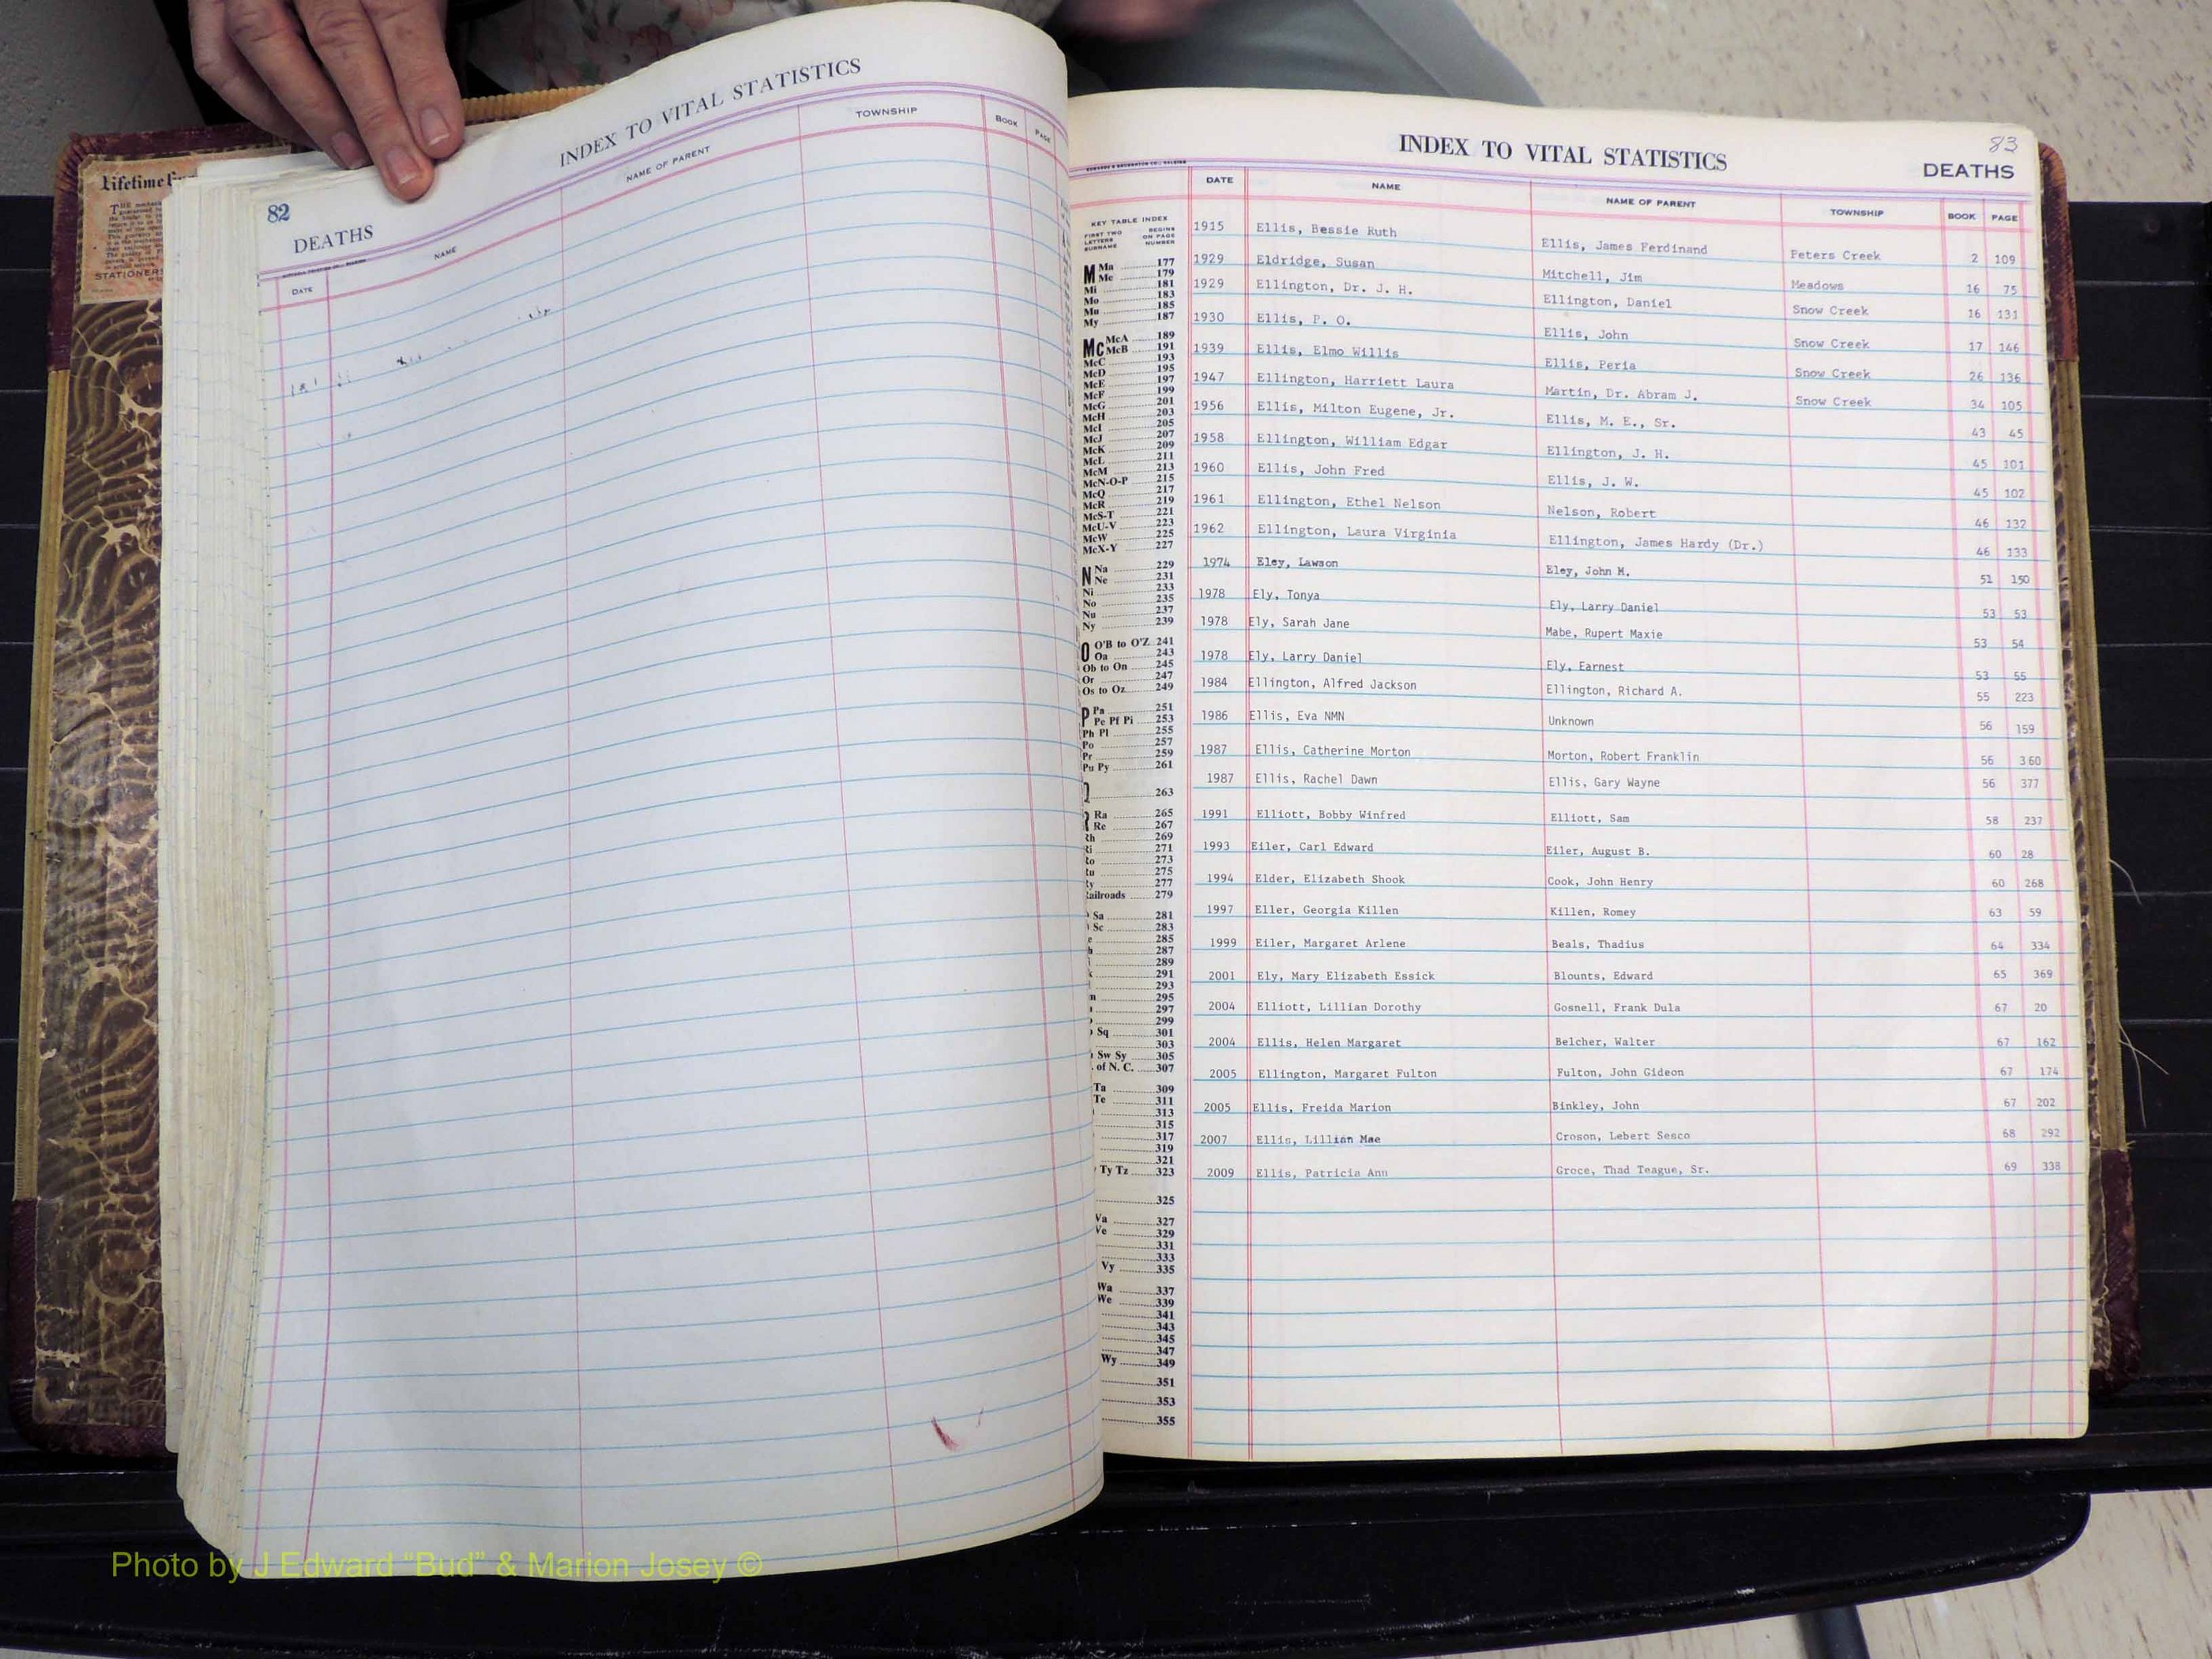 Lifetime
STATIONERS
82
INDEX TO VITAL STATISTICS
DEATHS
DATE NAME NAME OF PARENT TOWNSHIP BOOK PAGE
83
INDEX TO VITAL STATISTICS
DEATHS
DATE NAME NAME OF PARENT TOWNSHIP BOOK PAGE
1915 Ellis, Bessie Ruth Ellis, James Ferdinand Peters Creek 2 109
1929 Eldridge, Susan Mitchell, Jim Meadows 16 75
1929 Ellington, Dr. J. H. Ellington, Daniel Snow Creek 16 131
1930 Ellis, P. O. Ellis, John Snow Creek 17 146
1939 Ellis, Elmo Willis Ellis, Peria Snow Creek 26 136
1947 Ellington, Harriett Laura Martin, Dr. Abram J. Snow Creek 34 105
1956 Ellis, Milton Eugene, Jr. Ellis, M. E., Sr. 43 45
1958 Ellington, William Edgar Ellington, J. H. 45 101
1960 Ellis, John Fred Ellis, J. W. 45 102
1961 Ellington, Ethel Nelson Nelson, Robert 46 132
1962 Ellington, Laura Virginia Ellington, James Hardy (Dr.) 46 133
1974 Eley, Lawson Eley, John M. 51 150
1978 Ely, Tonya Ely, Larry Daniel 53 53
1978 Ely, Sarah Jane Mabe, Rupert Maxie 53 54
1978 Ely, Larry Daniel Ely, Earnest 53 55
1984 Ellington, Alfred Jackson Ellington, Richard A. 55 223
1986 Ellis, Eva NMN Unknown 56 159
1987 Ellis, Catherine Morton Morton, Robert Franklin 56 360
1987 Ellis, Rachel Dawn Ellis, Gary Wayne 56 377
1991 Elliott, Bobby Winfred Elliott, Sam 58 237
1993 Eiler, Carl Edward Eiler, August B. 60 28
1994 Elder, Elizabeth Shook Cook, John Henry 60 268
1997 Eller, Georgia Killen Killen, Romey 63 59
1999 Eiler, Margaret Arlene Beals, Thadius 64 334
2001 Ely, Mary Elizabeth Essick Blounts, Edward 65 369
2004 Elliott, Lillian Dorothy Gosnell, Frank Dula 67 20
2004 Ellis, Helen Margaret Belcher, Walter 67 162
2005 Ellington, Margaret Fulton Fulton, John Gideon 67 174
2005 Ellis, Freida Marion Binkley, John 67 202
2007 Ellis, Lillian Mae Croson, Lebert Sesco 68 292
2009 Ellis, Patricia Ann Groce, Thad Teague, Sr. 69 338
KEY TABLE INDEX
FIRST TWO LETTERS SURNAME BEGINS ON PAGE NUMBER
M Ma 177
Me 179
Mi 181
Mo 183
Mu 185
My 187
Mc McA 189
McB 191
McC 193
McD 195
McE 197
McF 199
McG 201
McH 203
McI 205
McJ 207
McK 209
McL 211
McM 213
McN-O-P 215
McQ 217
McR 219
McS-T 221
McU-V 223
McW 225
McX-Y 227
N Na 229
Ne 231
Ni 233
No 235
Nu 237
Ny 239
O O'B to O'Z 241
Oa 243
Ob to On 245
Or 247
Os to Oz 249
P Pa 251
Pe Pf Pi 253
Ph Pl 255
Po 257
Pr 259
Pu Py 261
263
Ra 265
Re 267
269
271
273
275
277
ailroads 279
Sa 281
Sc 283
285
287
289
291
293
295
297
299
Sq 301
303
Sw Sy 305
of N. C. 307
Ta 309
Te 311
313
315
317
319
321
Ty Tz 323
325
Va 327
Ve 329
331
333
Vy 335
Wa 337
We 339
341
343
345
347
Wy 349
351
353
355
Photo by J Edward “Bud” & Marion Josey ©